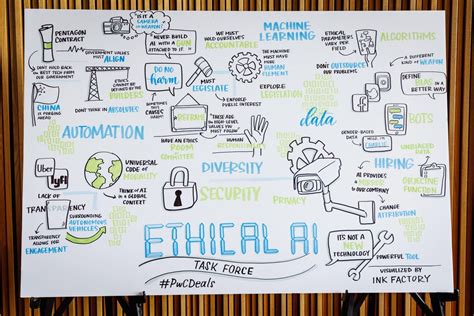 PENTAGON
CONTRACT
GOVERNMENT VALUES
MUST ALIGN
DON'T HOLD BACK
ON BEST TECH FROM
OUR GOVERNMENT
IS IT A
CAMERA
OR WEAPON?
NEVER BUILD
AI WITH A GUN
ATTACHED TO IT
WE MUST
HOLD OURSELVES
ACCOUNTABLE
MACHINE
LEARNING
THE MACHINE
MUST HAVE
HUMAN
ELEMENT
ETHICAL
PARAMETERS
VARY PER
FIELD
ALGORITHMS
A DIFFERENT
KIND OF WEAPON
DON'T OUTSOURCE
OUR PROBLEMS
DEFINE
BIAS
IN A
BETTER
WAY
CHINA
IS FORGING
AHEAD
ETHICS CANNOT BE
DEFINED BY
BORDERS
DON'T THINK IN ABSOLUTES
DO NO
HARM
SOMETIMES
DON'T CAUSES
HARM
MUST
LEGISLATE
ENFORCED
PUBLIC INTEREST
EXPLORE
LEGISLATION
data
BOTS
GENDER-BASED
DATA
HI, I'M
CHARLIE
AUTOMATION
RESEARCH
THESE ARE
HIGH LEVEL
VALUES YOU
MUST FOLLOW
HUMAN
RESEARCH
HAVE AN ETHICS
ROOM OR
COMMITTEE
Uber
Lyft
UNIVERSAL
CODE OF
THINK OF AI
IN A GLOBAL
CONTEXT
DIVERSITY
SECURITY
PRIVACY
HIRING
AI PROVIDES
A MISSION
TO OUR
COMPANY
OBJECTIVE
FUNCTION
CHANGE
ATTRIBUTION
LACK OF
TRANSPARENCY
SURROUNDING
AUTONOMOUS
VEHICLES
TRANSPARENCY
ALLOWS FOR
ENGAGEMENT
ETHICAL AI
TASK FORCE
#PwCDeals
IT'S NOT A
NEW
TECHNOLOGY
POWERFUL TOOL
VISUALIZED BY
INK FACTORY